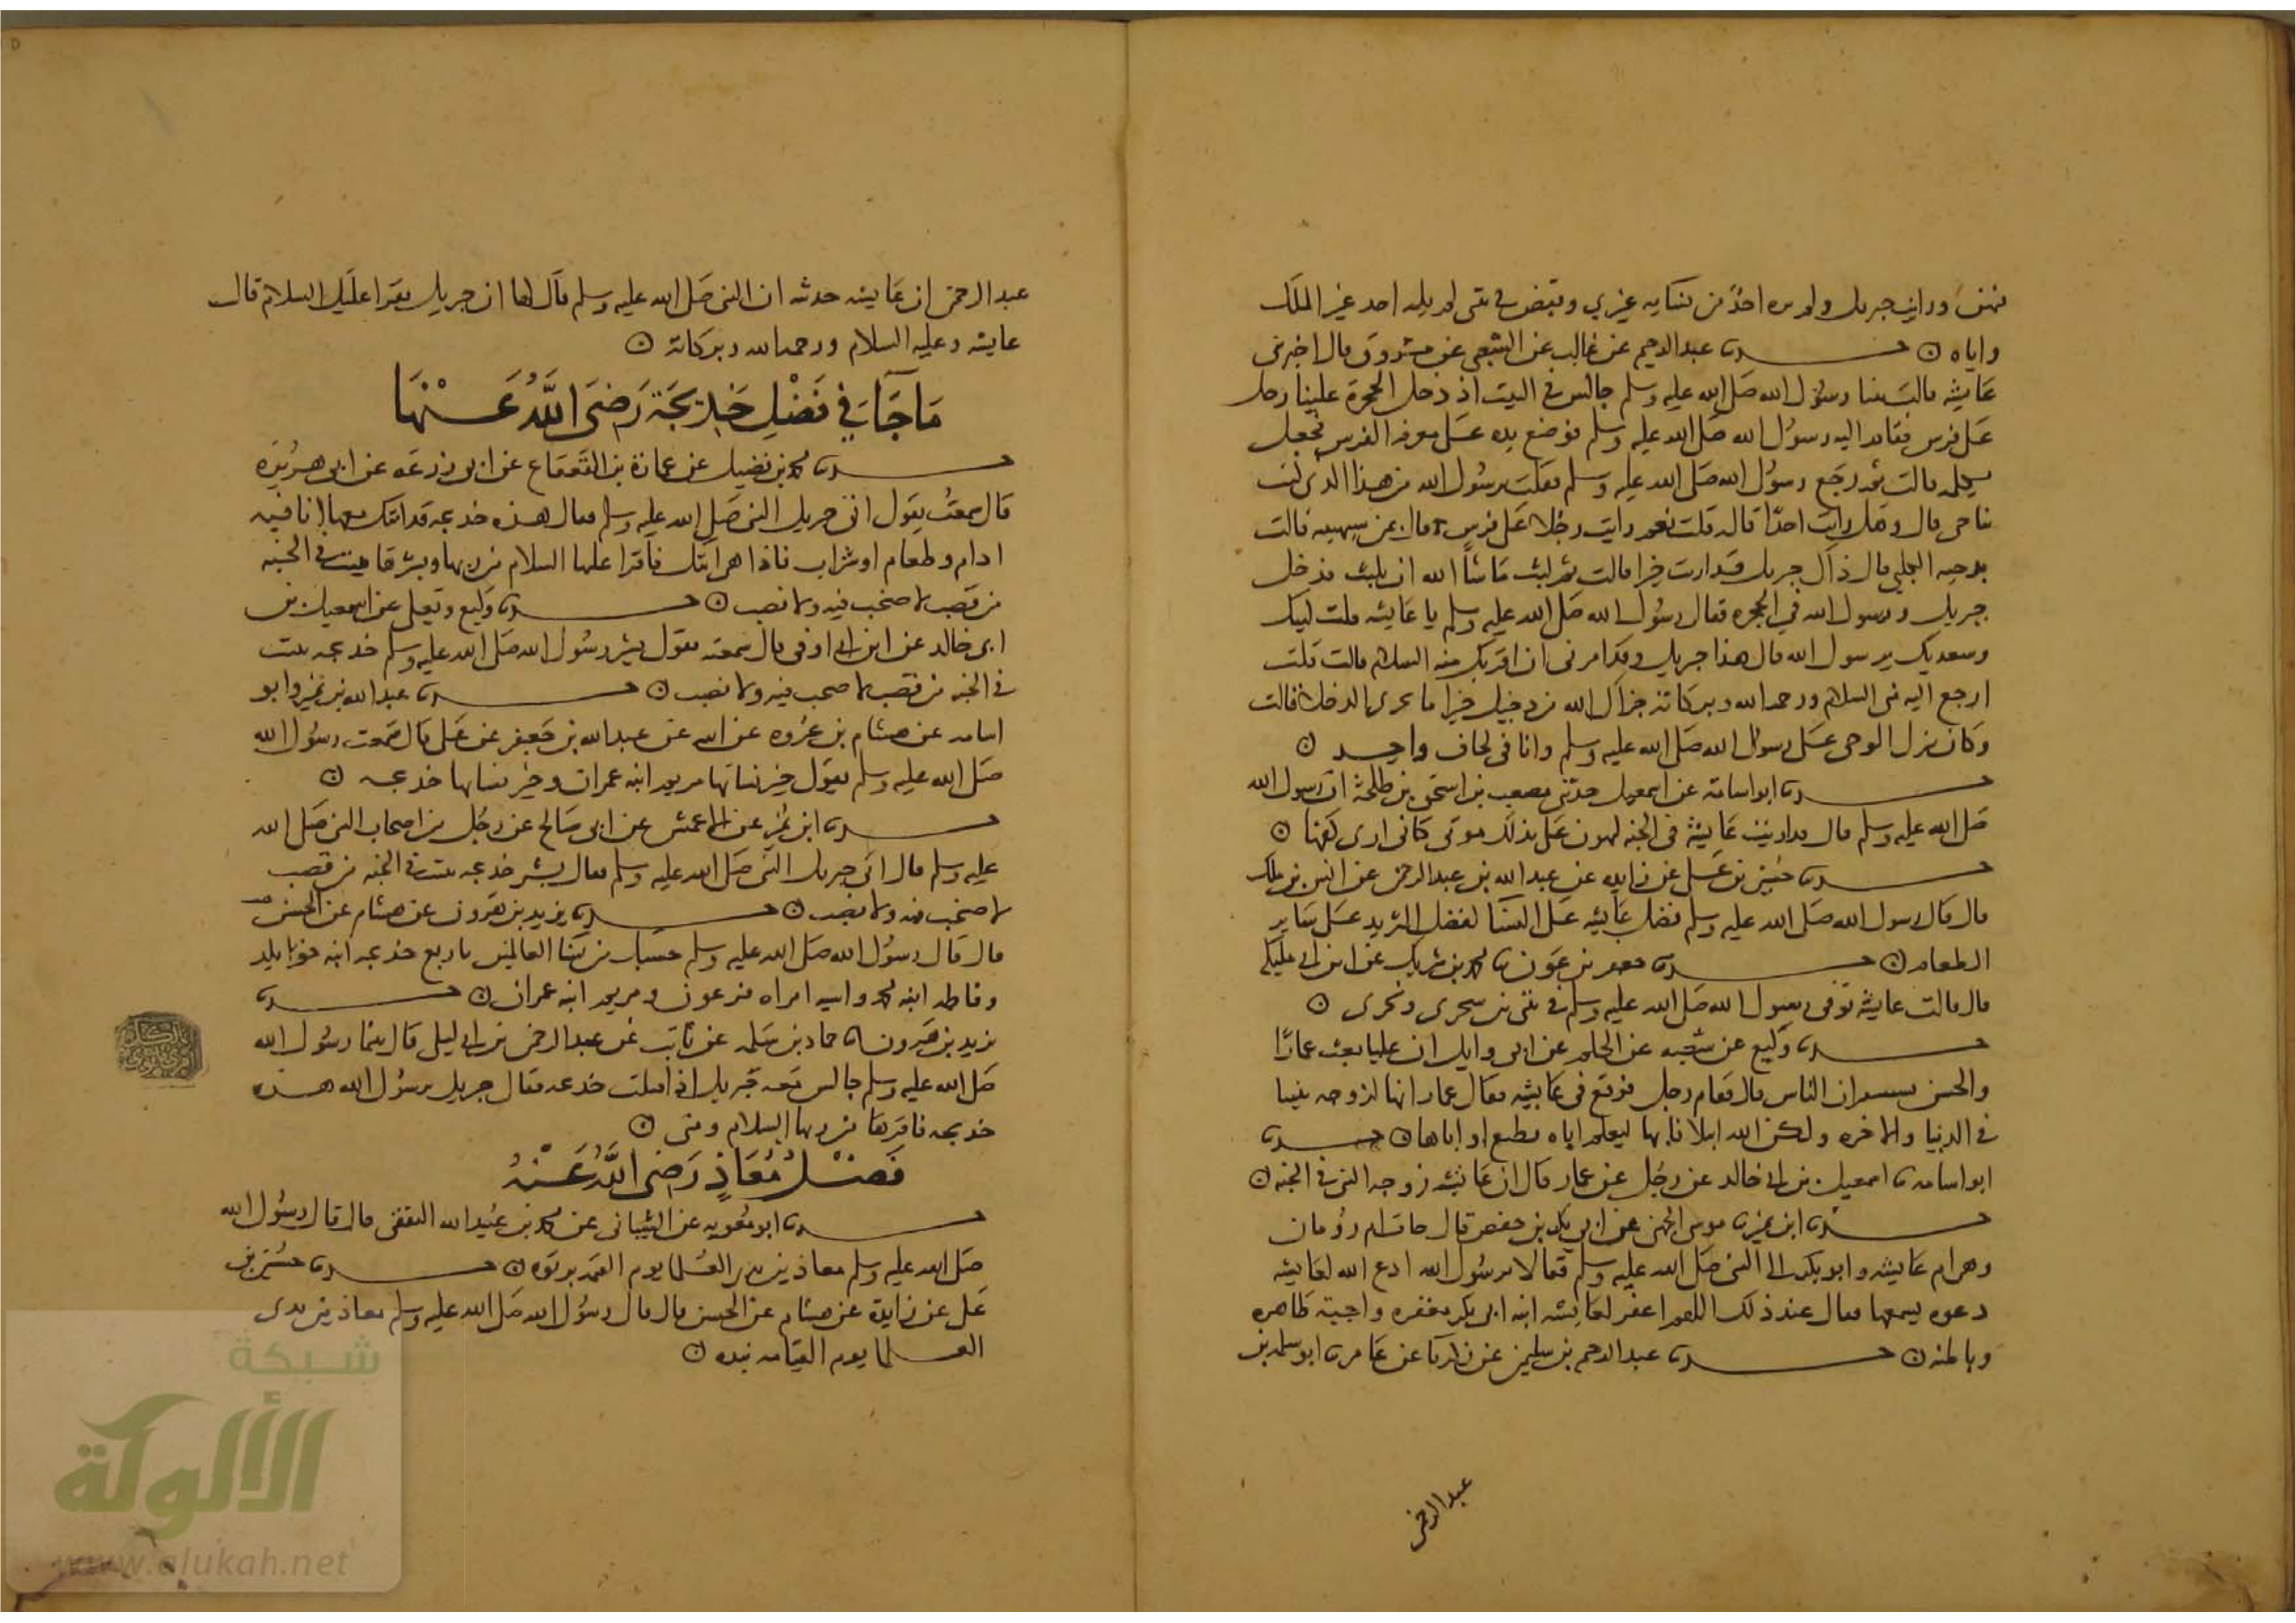 منهن ورايت جبريل ولم يره احد من نسايه غيري وقبض في بيتي لم يله احد غير الملك
واياه ۞ حدثنا عبد الرحيم عن مجالد عن الشعبي عن مسروق قال اخبرتني
عايشة قالت بينا رسول الله صلى الله عليه وسلم جالس في البيت اذ دخل الحجرة علينا رجل
على فرس فقام اليه رسول الله صلى الله عليه وسلم فوضع يده على معرفة الفرس فجعل
يكلمه قالت ثم رجع رسول الله صلى الله عليه وسلم فقلت يرسول الله من هذا الذي كنت
تناجي قال وهل رايت احدا قالت قلت نعم رايت رجلا على فرس قال بمن شبهتيه قالت
بدحية الكلبي قال ذاك جبريل قد رايت خيرا قالت ثم لبث ما شا الله ان يلبث فدخل
جبريل ورسول الله في الحجرة فقال رسول الله صلى الله عليه وسلم يا عايشة قلت لبيك
وسعديك يرسول الله قال هذا جبريل وقد امرني ان اقريك منه السلام قالت قلت
ارجع اليه مني السلام ورحمة الله وبركاته جزاك الله من دخيل خيرا ما يجزي الدخلا قالت
وكان ينزل الوحي على رسول الله صلى الله عليه وسلم وانا في لحاف واحد ۞
حدثنا ابو اسامة عن اسمعيل حدثني مصعب بن اسحق بن طلحة ان رسول الله
صلى الله عليه وسلم قال قد اريت عايشة في الجنة ليهون علي بذلك موتي كاني ارى كفها ۞
حدثنا حسين بن علي عن زايدة عن عبد الله بن عبد الرحمن عن انس بن ملك
قال قال رسول الله صلى الله عليه وسلم فضل عايشة على النسا كفضل الثريد على ساير
الطعام ۞ حدثنا جعفر بن عون نا محمد بن شريك عن ابن ابي مليكة
قال قالت عايشة توفي رسول الله صلى الله عليه وسلم في بيتي بين سحري ونحري ۞
حدثنا وكيع عن شعبة عن الحكم عن ابي وايل ان عليا بعث عمارا
والحسن يستنفران الناس قال فقام رجل فوقع في عايشة فقال عمار انها لزوجة نبينا
في الدنيا والاخرة ولكن الله ابتلانا بها ليعلم اياه نطيع او اياها ۞ حدثنا
ابو اسامة نا اسمعيل بن ابي خالد عن رجل عن عمار قال ان عايشة زوجة النبي في الجنة ۞
حدثنا ابن نمير نا موسى الجهني عن ابي بكر بن حفص قال جات ام رومان
وهي ام عايشة وابو بكر الى النبي صلى الله عليه وسلم فقالا يرسول الله ادع الله لعايشة
دعوة يسمعها فقال عند ذلك اللهم اغفر لعايشة ابنة ابي بكر مغفرة واجبة ظاهرة
وباطنة ۞ حدثنا عبد الرحيم بن سليمن عن زكريا عن عامر نا ابو سلمة بن
عبد الرحمن
عبد الرحمن ان عايشة حدثته ان النبي صلى الله عليه وسلم قال لها ان جبريل يقرا عليك السلام قالت
عايشة وعليه السلام ورحمة الله وبركاته ۞
مَا جَا في فَضْلِ خَدِيجَة رَضِيَ اللهُ عَنْهَا
حدثنا محمد بن فضيل عن عمارة بن القعقاع عن ابي زرعة عن ابي هريرة
قال سمعته يقول اتى جبريل النبي صلى الله عليه وسلم فقال هذه خديجة قد اتتك معها انا فيه
ادام وطعام او شراب فاذا هي اتتك فاقرا عليها السلام من ربها وبشرها ببيت في الجنة
من قصب لا صخب فيه ولا نصب ۞ حدثنا وكيع ويعلى عن اسمعيل بن
ابي خالد عن ابن ابي اوفى قال سمعته يقول بشر رسول الله صلى الله عليه وسلم خديجة ببيت
في الجنة من قصب لا صخب فيه ولا نصب ۞ حدثنا عبد الله بن نمير وابو
اسامة عن هشام بن عروة عن ابيه عن عبد الله بن جعفر عن علي قال سمعت رسول الله
صلى الله عليه وسلم يقول خير نسائها مريم ابنة عمران وخير نسائها خديجة ۞
حدثنا ابن نمير عن الاعمش عن ابي صالح عن رجل من اصحاب النبي صلى الله
عليه وسلم قال اتى جبريل النبي صلى الله عليه وسلم فقال بشر خديجة ببيت في الجنة من قصب
لا صخب فيه ولا نصب ۞ حدثنا يزيد بن هرون عن هشام عن الحسن
قال قال رسول الله صلى الله عليه وسلم حسبك من نسا العالمين باربع خديجة ابنة خويلد
وفاطمة ابنة محمد واسية امراة فرعون ومريم ابنة عمران ۞ حدثنا
يزيد بن هرون نا حماد بن سلمة عن ثابت عن عبد الرحمن بن ابي ليلى قال بينما رسول الله
صلى الله عليه وسلم جالس معه جبريل اذ اقبلت خديجة فقال جبريل يرسول الله هذه
خديجة فاقرها من ربها السلام ومني ۞
فَضْلُ مُعَاذٍ رَضِيَ اللهُ عَنْهُ
حدثنا ابو معوية عن الشيباني عن محمد بن عبيد الله الثقفي قال قال رسول الله
صلى الله عليه وسلم معاذ بين يدي العلما يوم القيمة برتوة ۞ حدثنا حسين بن
علي عن زايدة عن هشام عن الحسن قال قال رسول الله صلى الله عليه وسلم معاذ بين يدي
العلما يوم القيامة نبذة ۞
شبكة
الألوكة
www.alukah.net